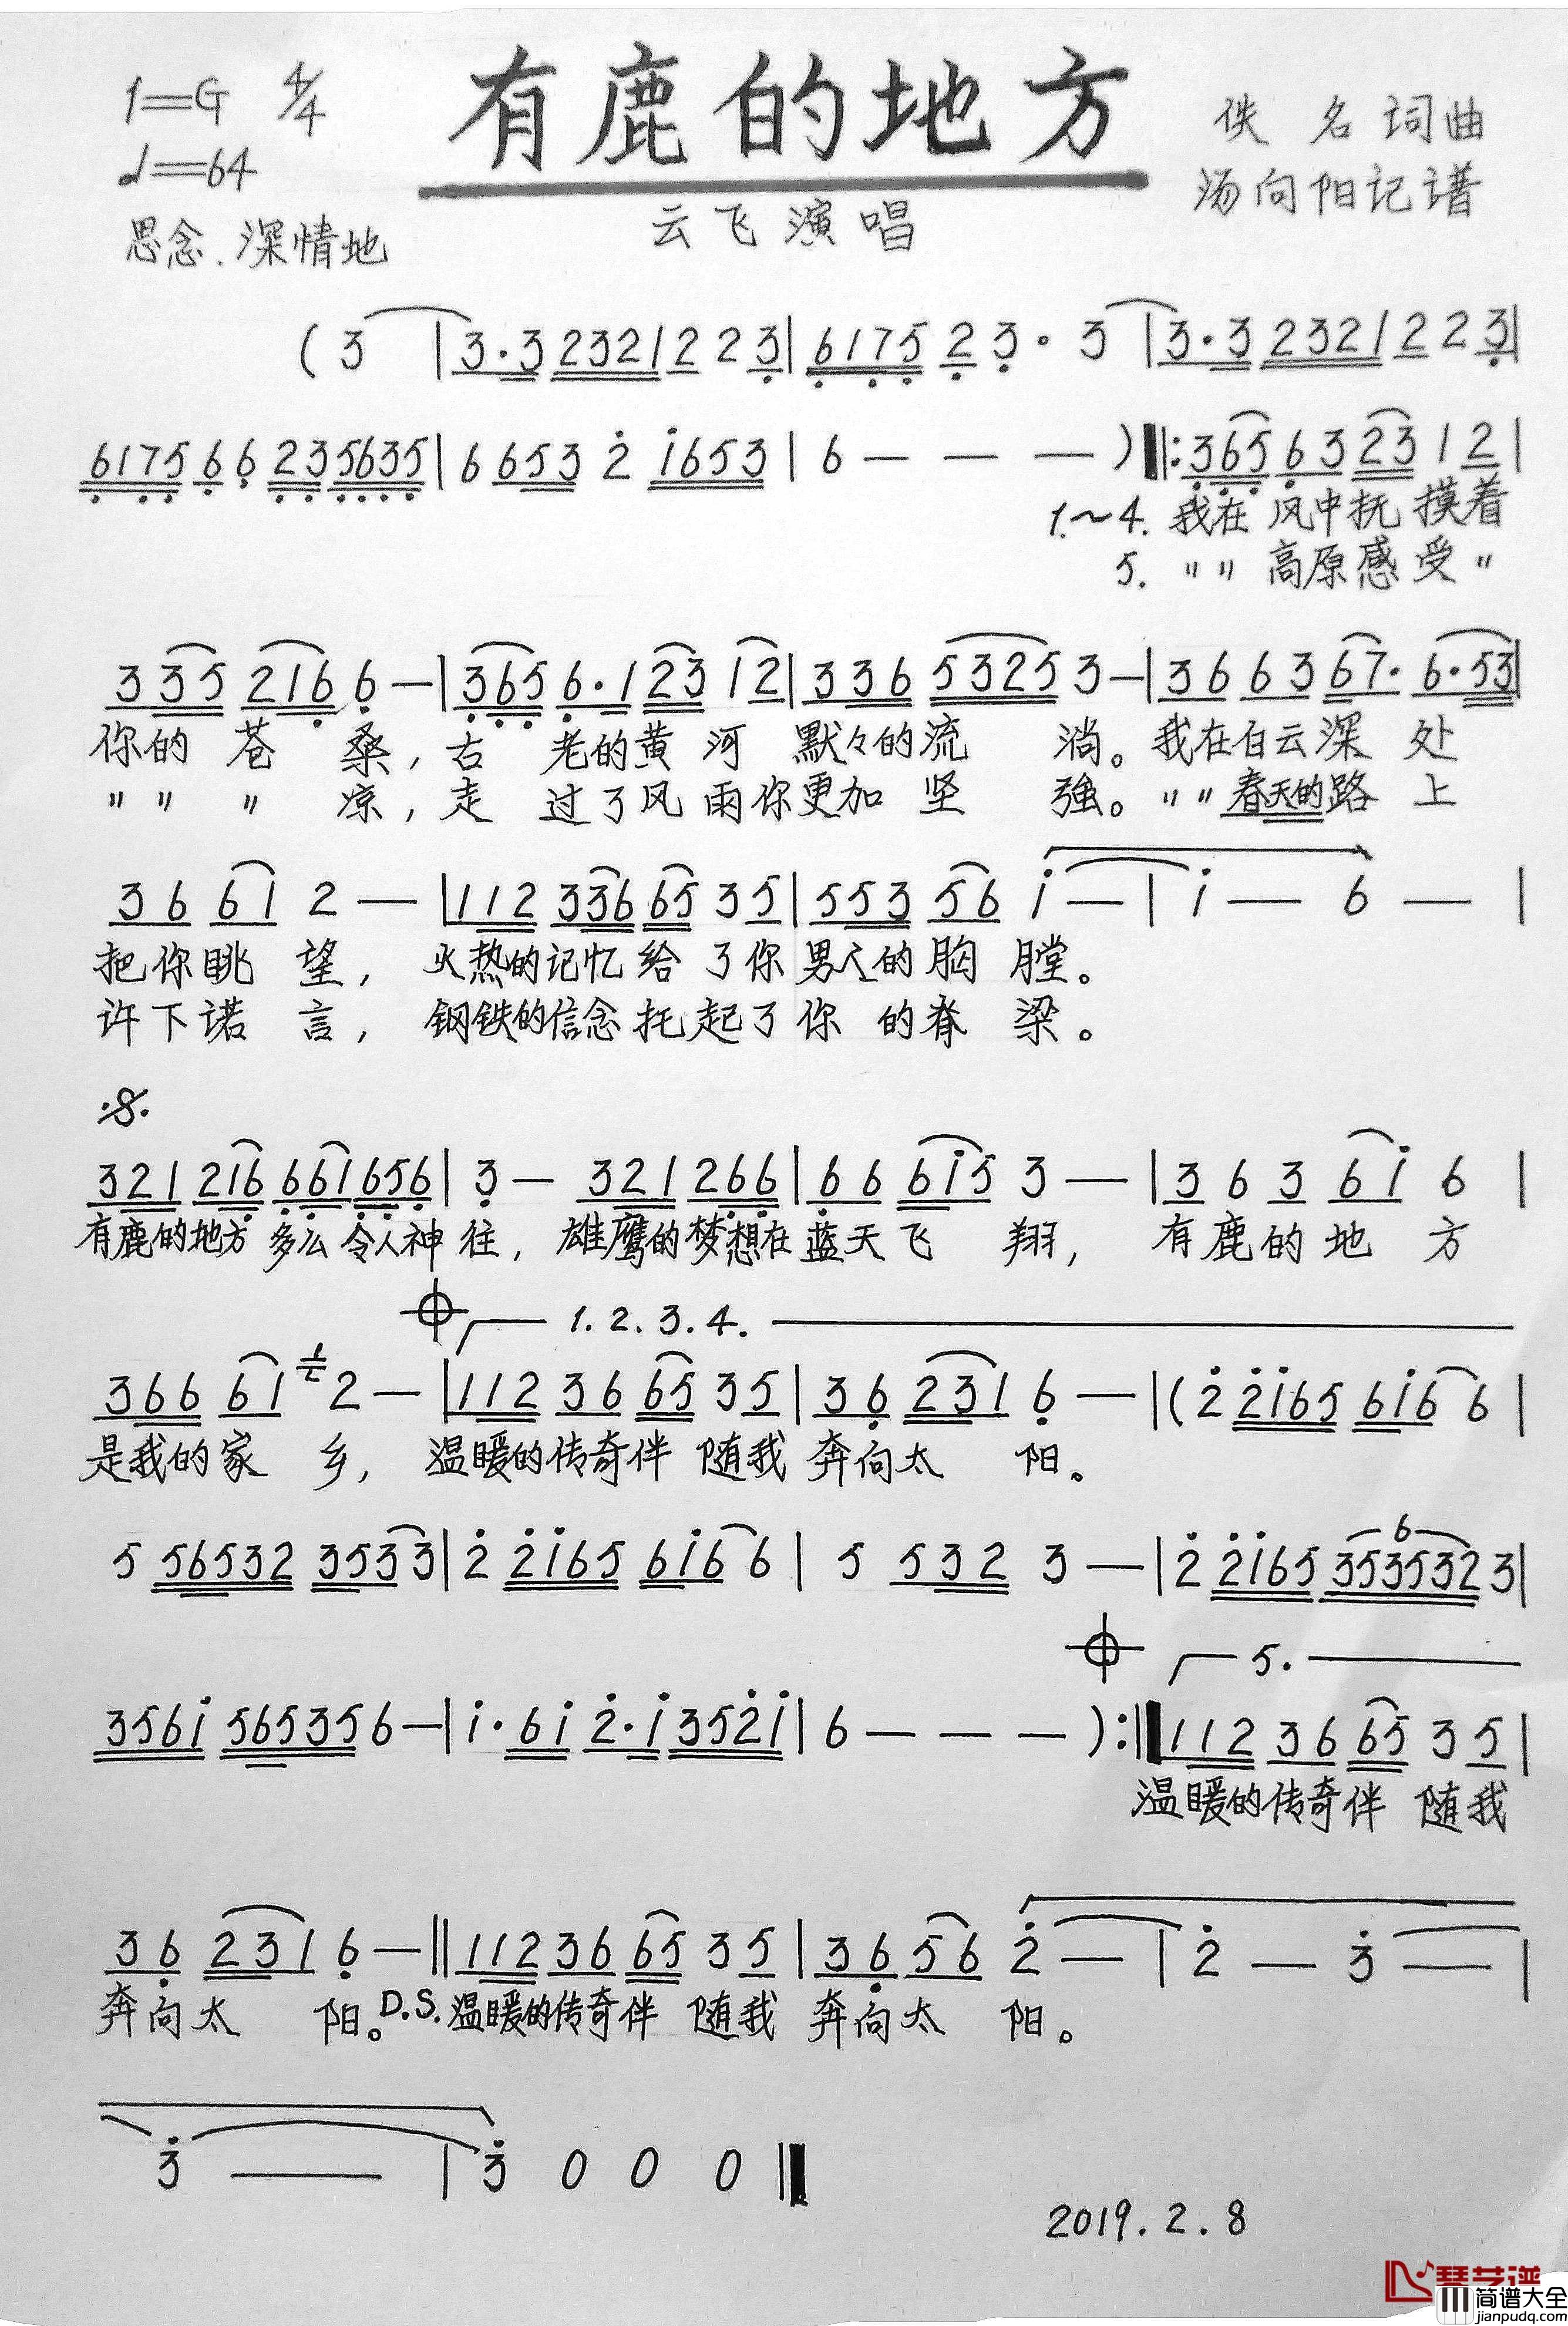 1=G 4/4
有鹿的地方
佚名词曲
♩=64
汤向阳记谱
云飞演唱
思念.深情地
( 3 | 3·3 2321 2 2 3 | 6175 2 3· 3 | 3·3 2321 2 2 3 |
6175 6 6 23 5635 | 6 653 2 1653 | 6 — — — ) ‖: 365 63 23 1 2 |
1.～4. 我在 风中抚 摸着
5. 〃〃 高原感 受〃
335 216 6 — | 365 6·1 23 12 | 336 5325 3 — | 36 63 67· 6·53 |
你的 苍 桑, 古 老的黄 河 默々的流 淌。我在白云深 处
〃〃 〃 凉, 走 过了风 雨你更加 坚 強。〃〃春天的路 上
36 61 2 — | 112 336 65 35 | 553 56 1 — | 1 — 6 — |
把你眺 望, 火热的记忆给 了你男人的胸 膛。
许下诺 言, 钢铁的信念托起了你 的脊 梁。
𝄋
321 216 661 656 | 3 — 321 266 | 66 615 3 — | 3 6 3 61 6 |
有鹿的地方 多么 令人神 往, 雄鹰的梦想在蓝天飞 翔, 有鹿的地 方
𝄌 1.2.3.4.
366 61 1 2 — | 112 36 65 35 | 36 231 6 — | (2 2165 616 6 |
是我的家 乡, 温暖的传奇伴 随我 奔向太 阳。
5 56532 3533 | 2 2165 616 6 | 5 532 3 — | 2 2165 353532 3 |
6
𝄌 5.
3561 565356 — | 1·61 2·1 3521 | 6 — — — ) :‖ 112 36 65 35 |
温暖的传奇伴 随我
36 231 6 — ‖ 112 36 65 35 | 36 56 2 — | 2 — 3 — |
奔向太 阳。D.S. 温暖的传奇伴 随我 奔向太 阳。
3 — | 3 0 0 0 ‖
2019.2.8
琴艺谱
简谱大全
jianpudq.com